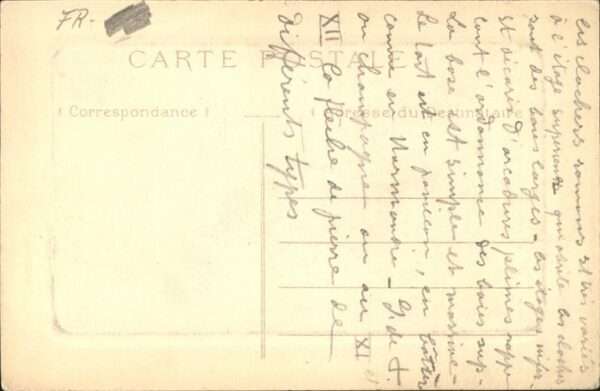 FR-
CARTE POSTALE
( Correspondance )
( Adresse du Destinataire
les clochers romans st très variés
à l'étage supérieur qui abrite les cloches
sont des baies larges - les étages infér
st décorés d'arcatures pleines rapp
lant l'ordonnance des baies sup
La base est simple et massive -
Le toit est en
comme en Normandie -
ou champagne ou au XI et
XII la flèche de pierre de
différents types